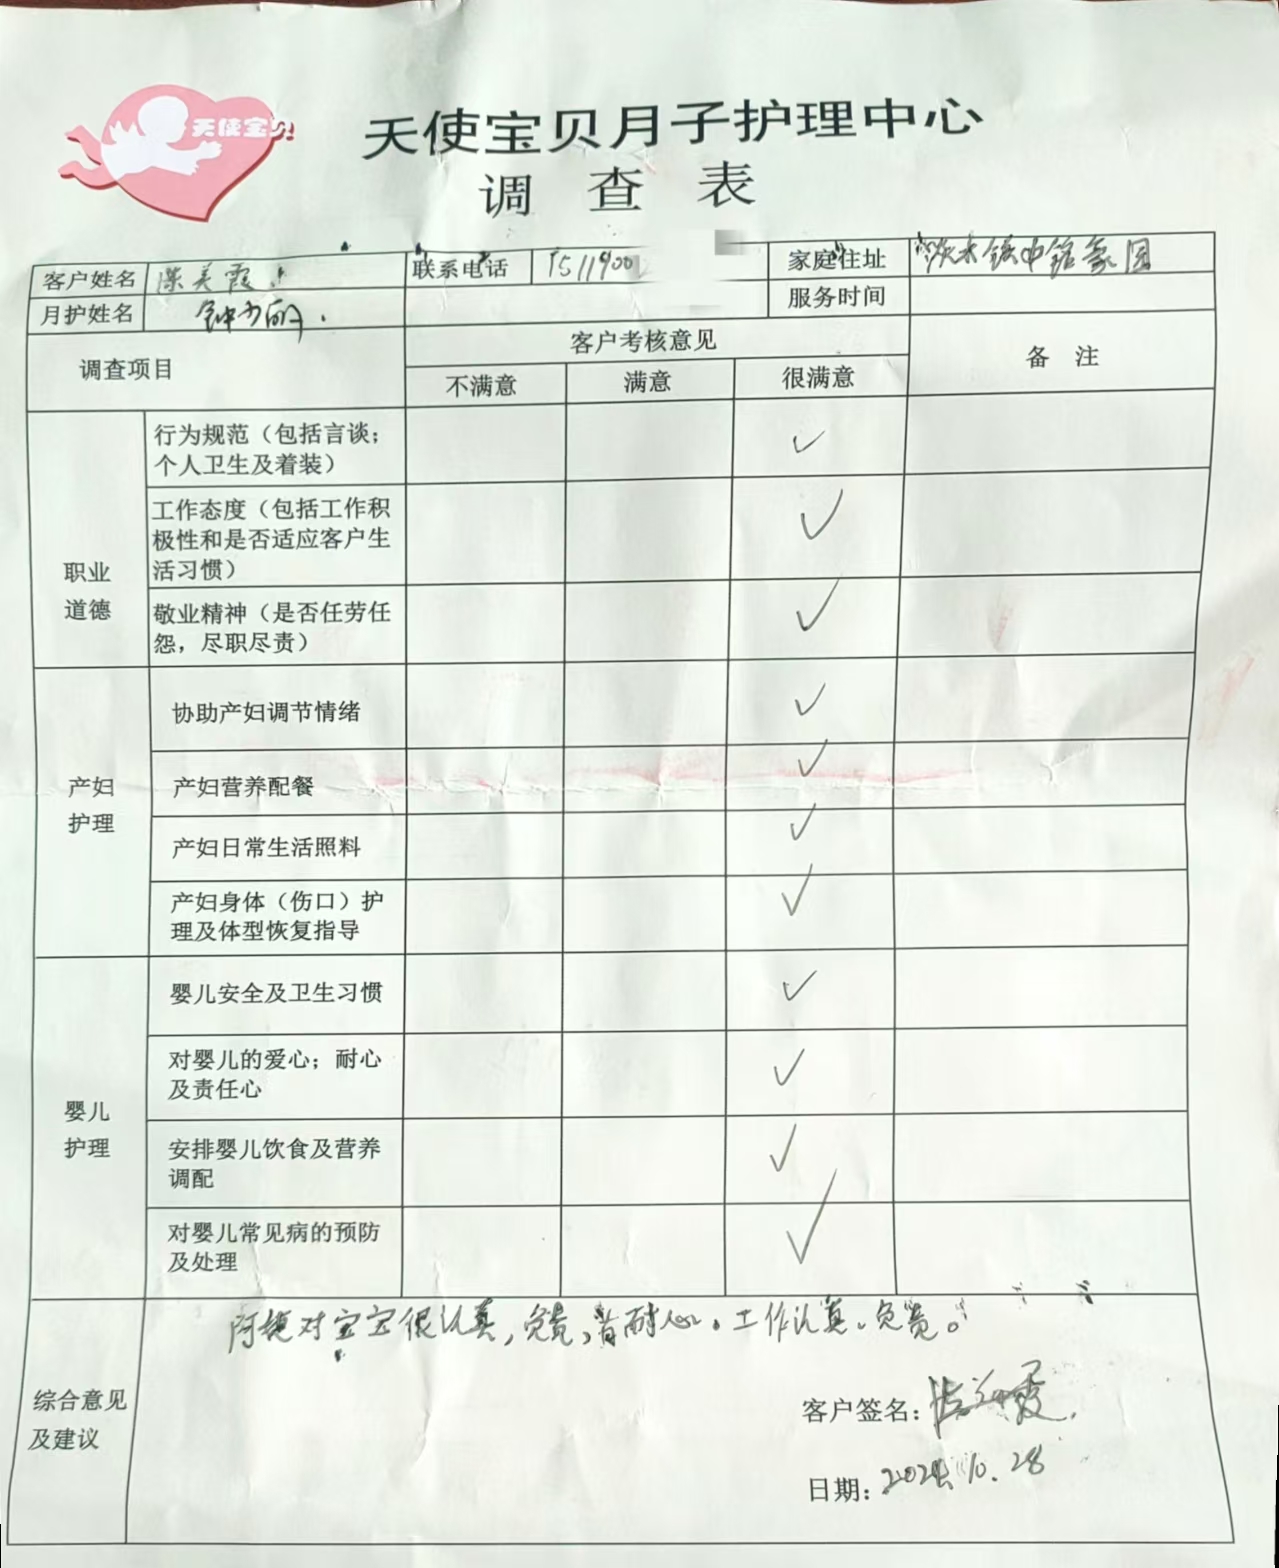 天使宝贝
天使宝贝月子护理中心
调查表
客户姓名 美霞 联系电话 1511900 家庭住址 淡水镇中 豪园
月护姓名 钟 服务时间
调查项目 客户考核意见 备注
不满意 满意 很满意
职业
道德
行为规范（包括言谈；
个人卫生及着装）
工作态度（包括工作积
极性和是否适应客户生
活习惯）
敬业精神（是否任劳任
怨，尽职尽责）
产妇
护理
协助产妇调节情绪
产妇营养配餐
产妇日常生活照料
产妇身体（伤口）护
理及体型恢复指导
婴儿
护理
婴儿安全及卫生习惯
对婴儿的爱心；耐心
及责任心
安排婴儿饮食及营养
调配
对婴儿常见病的预防
及处理
综合意见
及建议
阿姨对宝宝很认真，负责，有耐心。工作认真。负责。
客户签名：
日期：2024.10.28